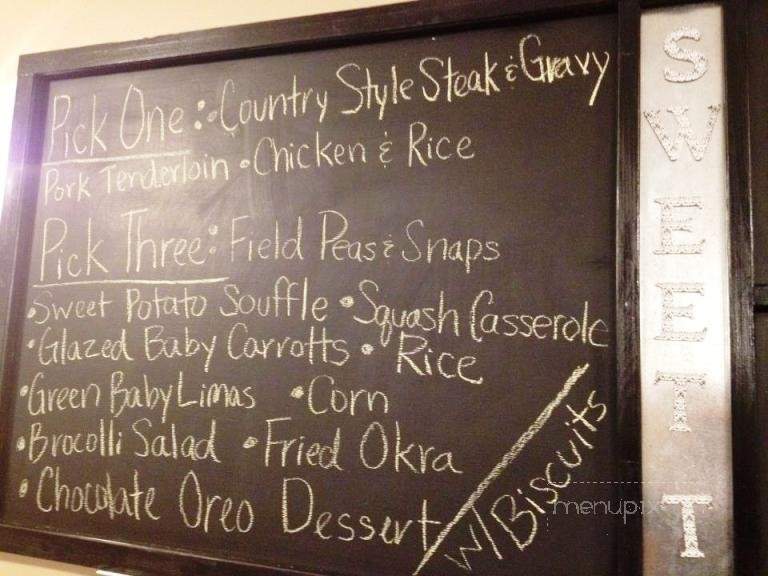 Pick One: • Country Style Steak & Gravy
Pork Tenderloin • Chicken & Rice
Pick Three: Field Peas & Snaps
• Sweet Potato Souffle • Squash Casserole
• Glazed Baby Carrotts • Rice
• Green Baby Limas • Corn
• Brocolli Salad • Fried Okra
• Chocolate Oreo Dessert
w/ Biscuits
SWEET T
menupix